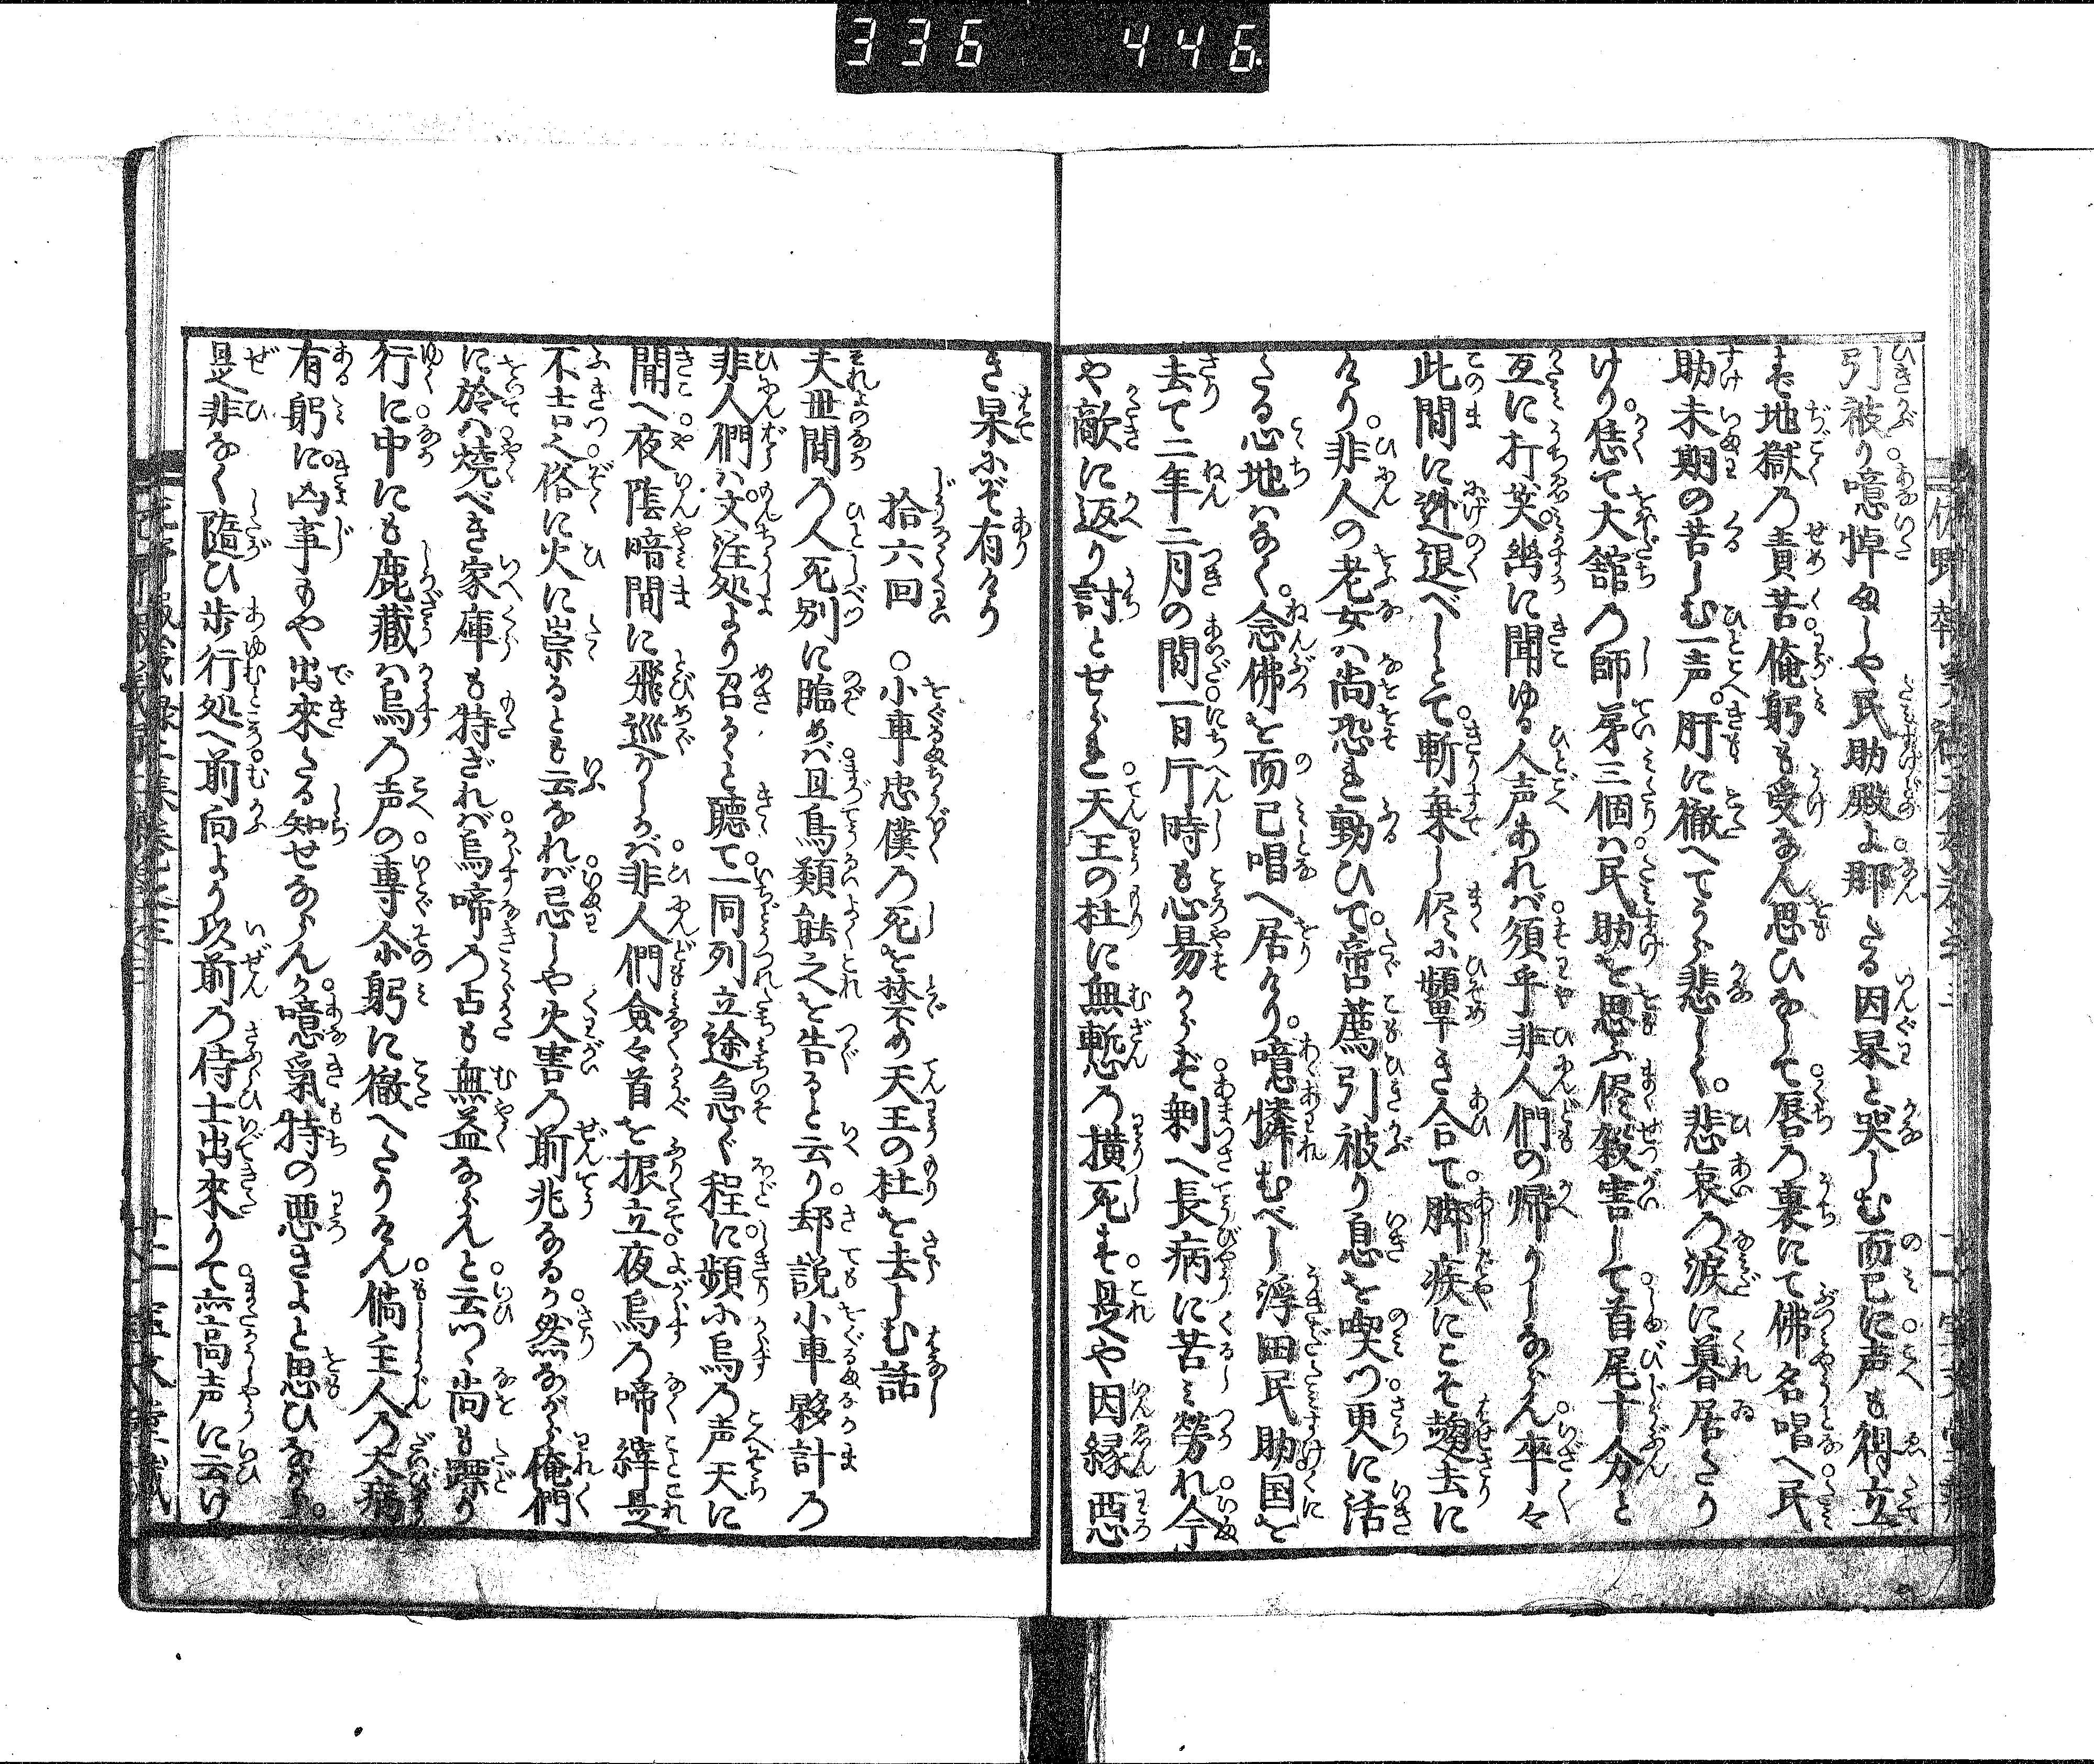 336 446
引被り噫悼ぬしや民助殿よ那たる因果と哭しむ而已に声も得立
ず地獄乃責苦俺躬も受なん思ひなして唇乃裏にて佛名唱へ民
助未期の苦しむ一声肝に徹へてうら悲しく悲哀乃涙に暮居たり
けり恁て大舘乃師弟三個ハ民助を思ふ侭殺害して首尾十分と
互に打笑幽に聞ゆる人声あれバ須乎非人們の帰りしならん卒々
此間に迯退べしとて斬棄し侭に顰き合て脚疾にこそ趨去に
けり非人の老女ハ尚恐れ動ひて啻薦引被り息を喫つ更に活
たる心地ハなく念佛を而已唱へ居けり噫憐むべし浮田民助国を
去て二年二月の間一日片時も心易からず剰へ長病に苦ミ労れ今
や敵に返り討とせられ天王の杜に無慙乃横死す是や因縁悪
き果にぞ有けり
拾六回　○小車忠僕乃死を禁め天王の杜を去しむ話
夫世間乃人死別に臨めバ且鳥類能之を告ると云り却説小車夥計乃
非人們ハ文注処より召ると聴て一同列立途急ぐ程に頻に烏乃声天に
聞へ夜陰暗間に飛巡りしかバ非人們僉々首を振立夜烏乃啼繹是
不吉之俗に火に崇るとも云なれバ忌しや火害乃前兆なるか然ながら俺們
に於ハ燒べき家庫も持ざれバ烏啼乃占も無益ならんと云つゝ尚も驃り
行に中にも鹿藏ハ烏乃声の專尓躬に徹へたりけん倘主人乃大病
有躬に凶事もや出來たる知せならんか噫氣特の悪きよと思ひながら
是非なく隨ひ歩行処へ前向より以前乃侍士出來りて亦高声に云け